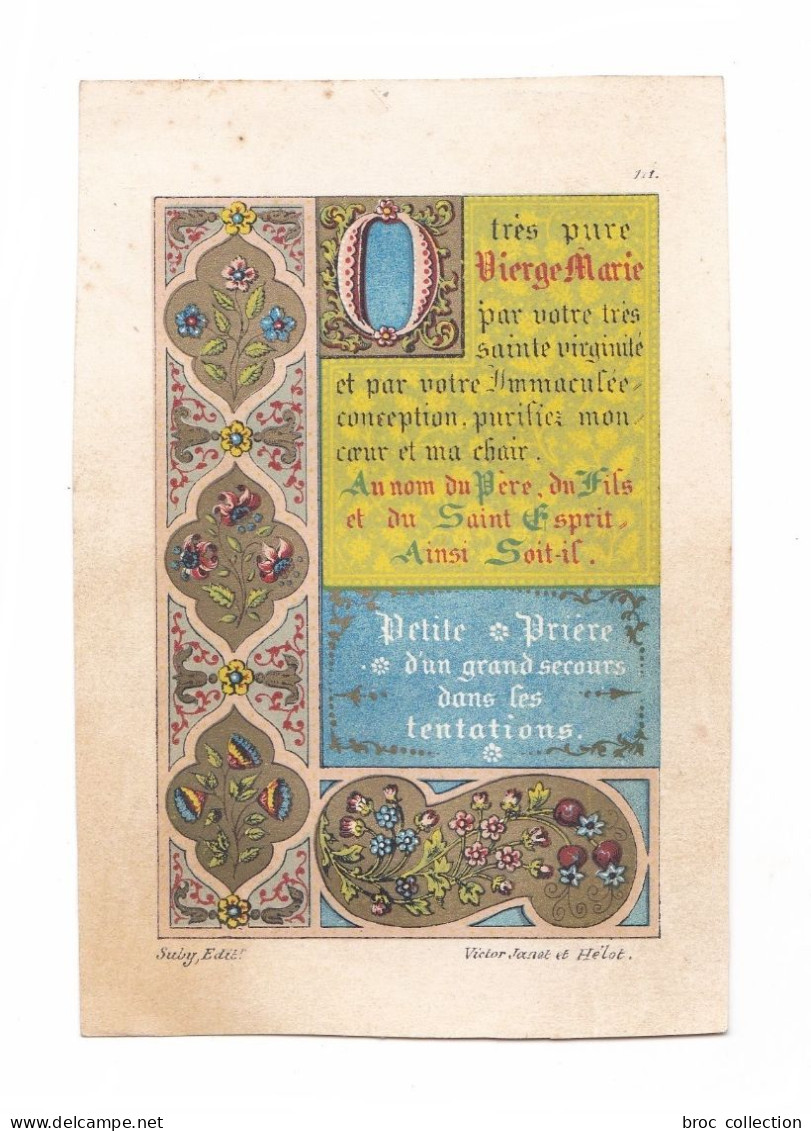 111.
O très pure
Vierge Marie
par votre très
sainte virginité
et par votre Immaculée-
conception, purifiez mon-
cœur et ma chair.
Au nom du Père, du Fils
et du Saint Esprit,
Ainsi Soit-il.
Petite Prière
d'un grand secours
dans les
tentations.
Suby, Edit.r
Victor Janet et Hélot.
broc collection / delcampe.net